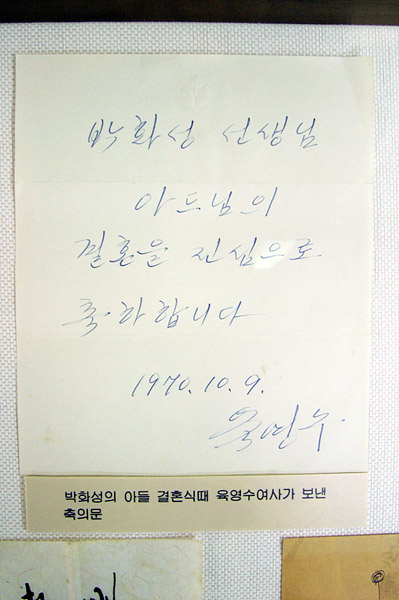 박화성 선생님
아드님의
결혼을 진심으로
축하합니다
1970. 10. 9.
육영수
박화성의 아들 결혼식때 육영수여사가 보낸
축의문